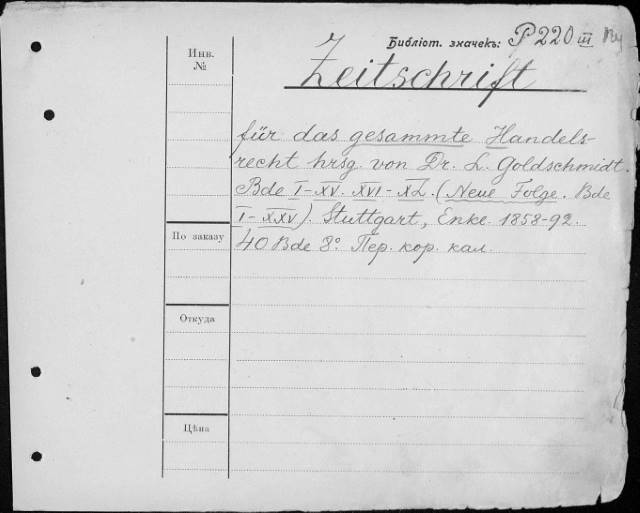 Библіот. значекъ: P 220 III
Инв.
№
Zeitschrift
für das gesammte Handels-
recht hrsg. von Dr. L. Goldschmidt.
Bde I-XV. XVI-XL. (Neue Folge. Bde
I-XXV). Stuttgart, Enke 1858-92.
По заказу
40 Bde 8°. Пер. кор. кал.
Откуда
Цѣна